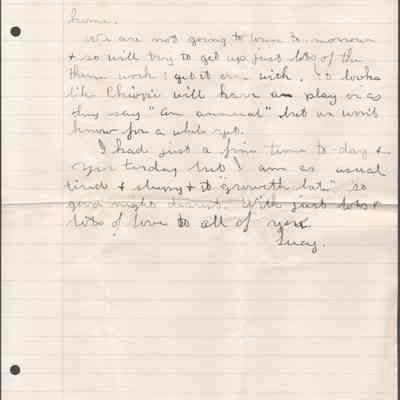 home.
We are not going to town to-morrow
& so will try to get up just lots of the
theme work & get it over with. It looks
like Chiopi will have a play or as
they say "an annual" but we won't
know for a while yet.
I had just a fine time to-day &
yesterday but I am as usual
tired & sleepy & it "groweth late" so
good night dearest. With just lots &
lots of love to all of you.
Lucy.